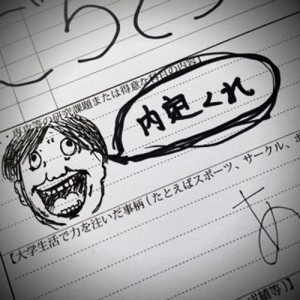 ごちそう
・専攻等の研究課題または得意な科目の内容）
内定くれ
【大学生活で力を注いだ事柄（たとえばスポーツ、サークル、ボ
あ